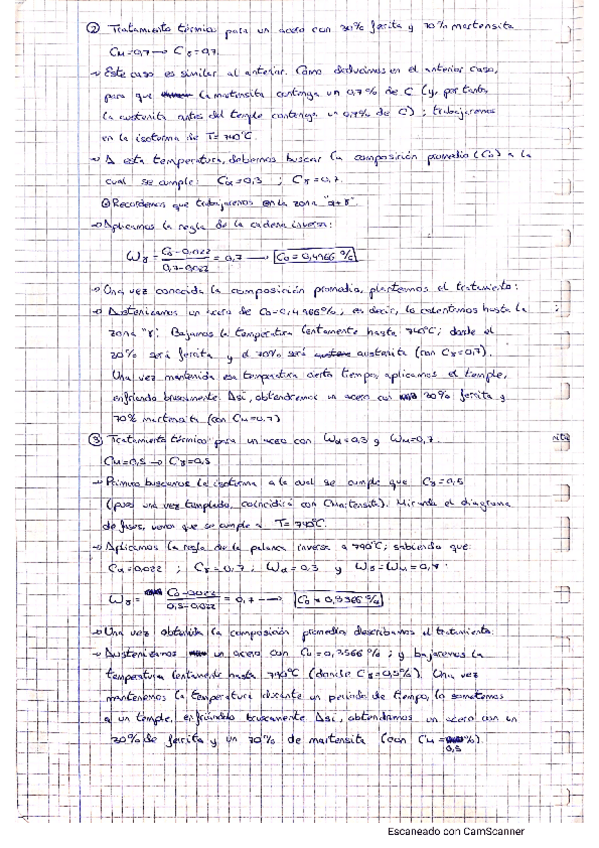 ② Tratamiento térmico para un acero con 30% ferrita y 70% martensita
CM=0,7 → Cγ=0,7.
→ Este caso es similar al anterior. Como dedujimos en el anterior caso,
para que la martensita contenga un 0,7% de C (y, por tanto,
la austenita antes del temple contenga un 0,7% de C); trabajaremos
en la isoterma de T= 740°C.
→ A esta temperatura, debemos buscar la composición promedio (C0) a la
cual se cumple: Cα=0,3 ; Cγ=0,7.
Recordemos que trabajaremos en la zona "α+γ"
→ Aplicamos la regla de la cadena inversa:
Wγ = C0-0,022 / 0,7-0,022 = 0,7 → C0=0,4966 %
→ Una vez conocida la composición promedio, planteamos el tratamiento:
→ Austenizamos un acero de C0=0,4966%; es decir, lo calentamos hasta la
zona "γ". Bajamos la temperatura lentamente hasta 740°C; donde el
30% será ferrita y el 70% será austenita (con Cγ=0,7).
Una vez mantenida esa temperatura cierto tiempo, aplicamos el temple,
enfriando bruscamente. Así, obtendremos un acero con 30% ferrita y
70% martensita (con CM=0,7)
③ Tratamiento térmico para un acero con Wα=0,3 y WM=0,7.
CM=0,5 → Cγ=0,5
→ Primero buscamos la isoterma a la cual se cumple que Cγ=0,5
(pues una vez templado, coincidirá con CMartensita). Mirando el diagrama
de fases, vemos que se cumple a T=
→ Aplicamos la regla de la palanca inversa a 790°C; sabiendo que:
Cα=0,022 ; Cγ=0,7 ; Wα=0,3 y Wγ=WM=0,7.
Wγ = C0-0,022 / 0,5-0,022 = 0,7 → C0=0,3566 %
→ Una vez obtenida la composición promedio describamos el tratamiento:
→ Austenizamos un acero con =0,3566%; y bajaremos la
temperatura lentamente hasta 790°C (donde Cγ=0,5%). Una vez
mantenemos la temperatura durante un periodo de tiempo, lo sometemos
a un temple, enfriándolo bruscamente. Así, obtendremos un acero con un
30% de ferrita y un 70% de martensita (con CM=0,5%).
Escaneado con CamScanner